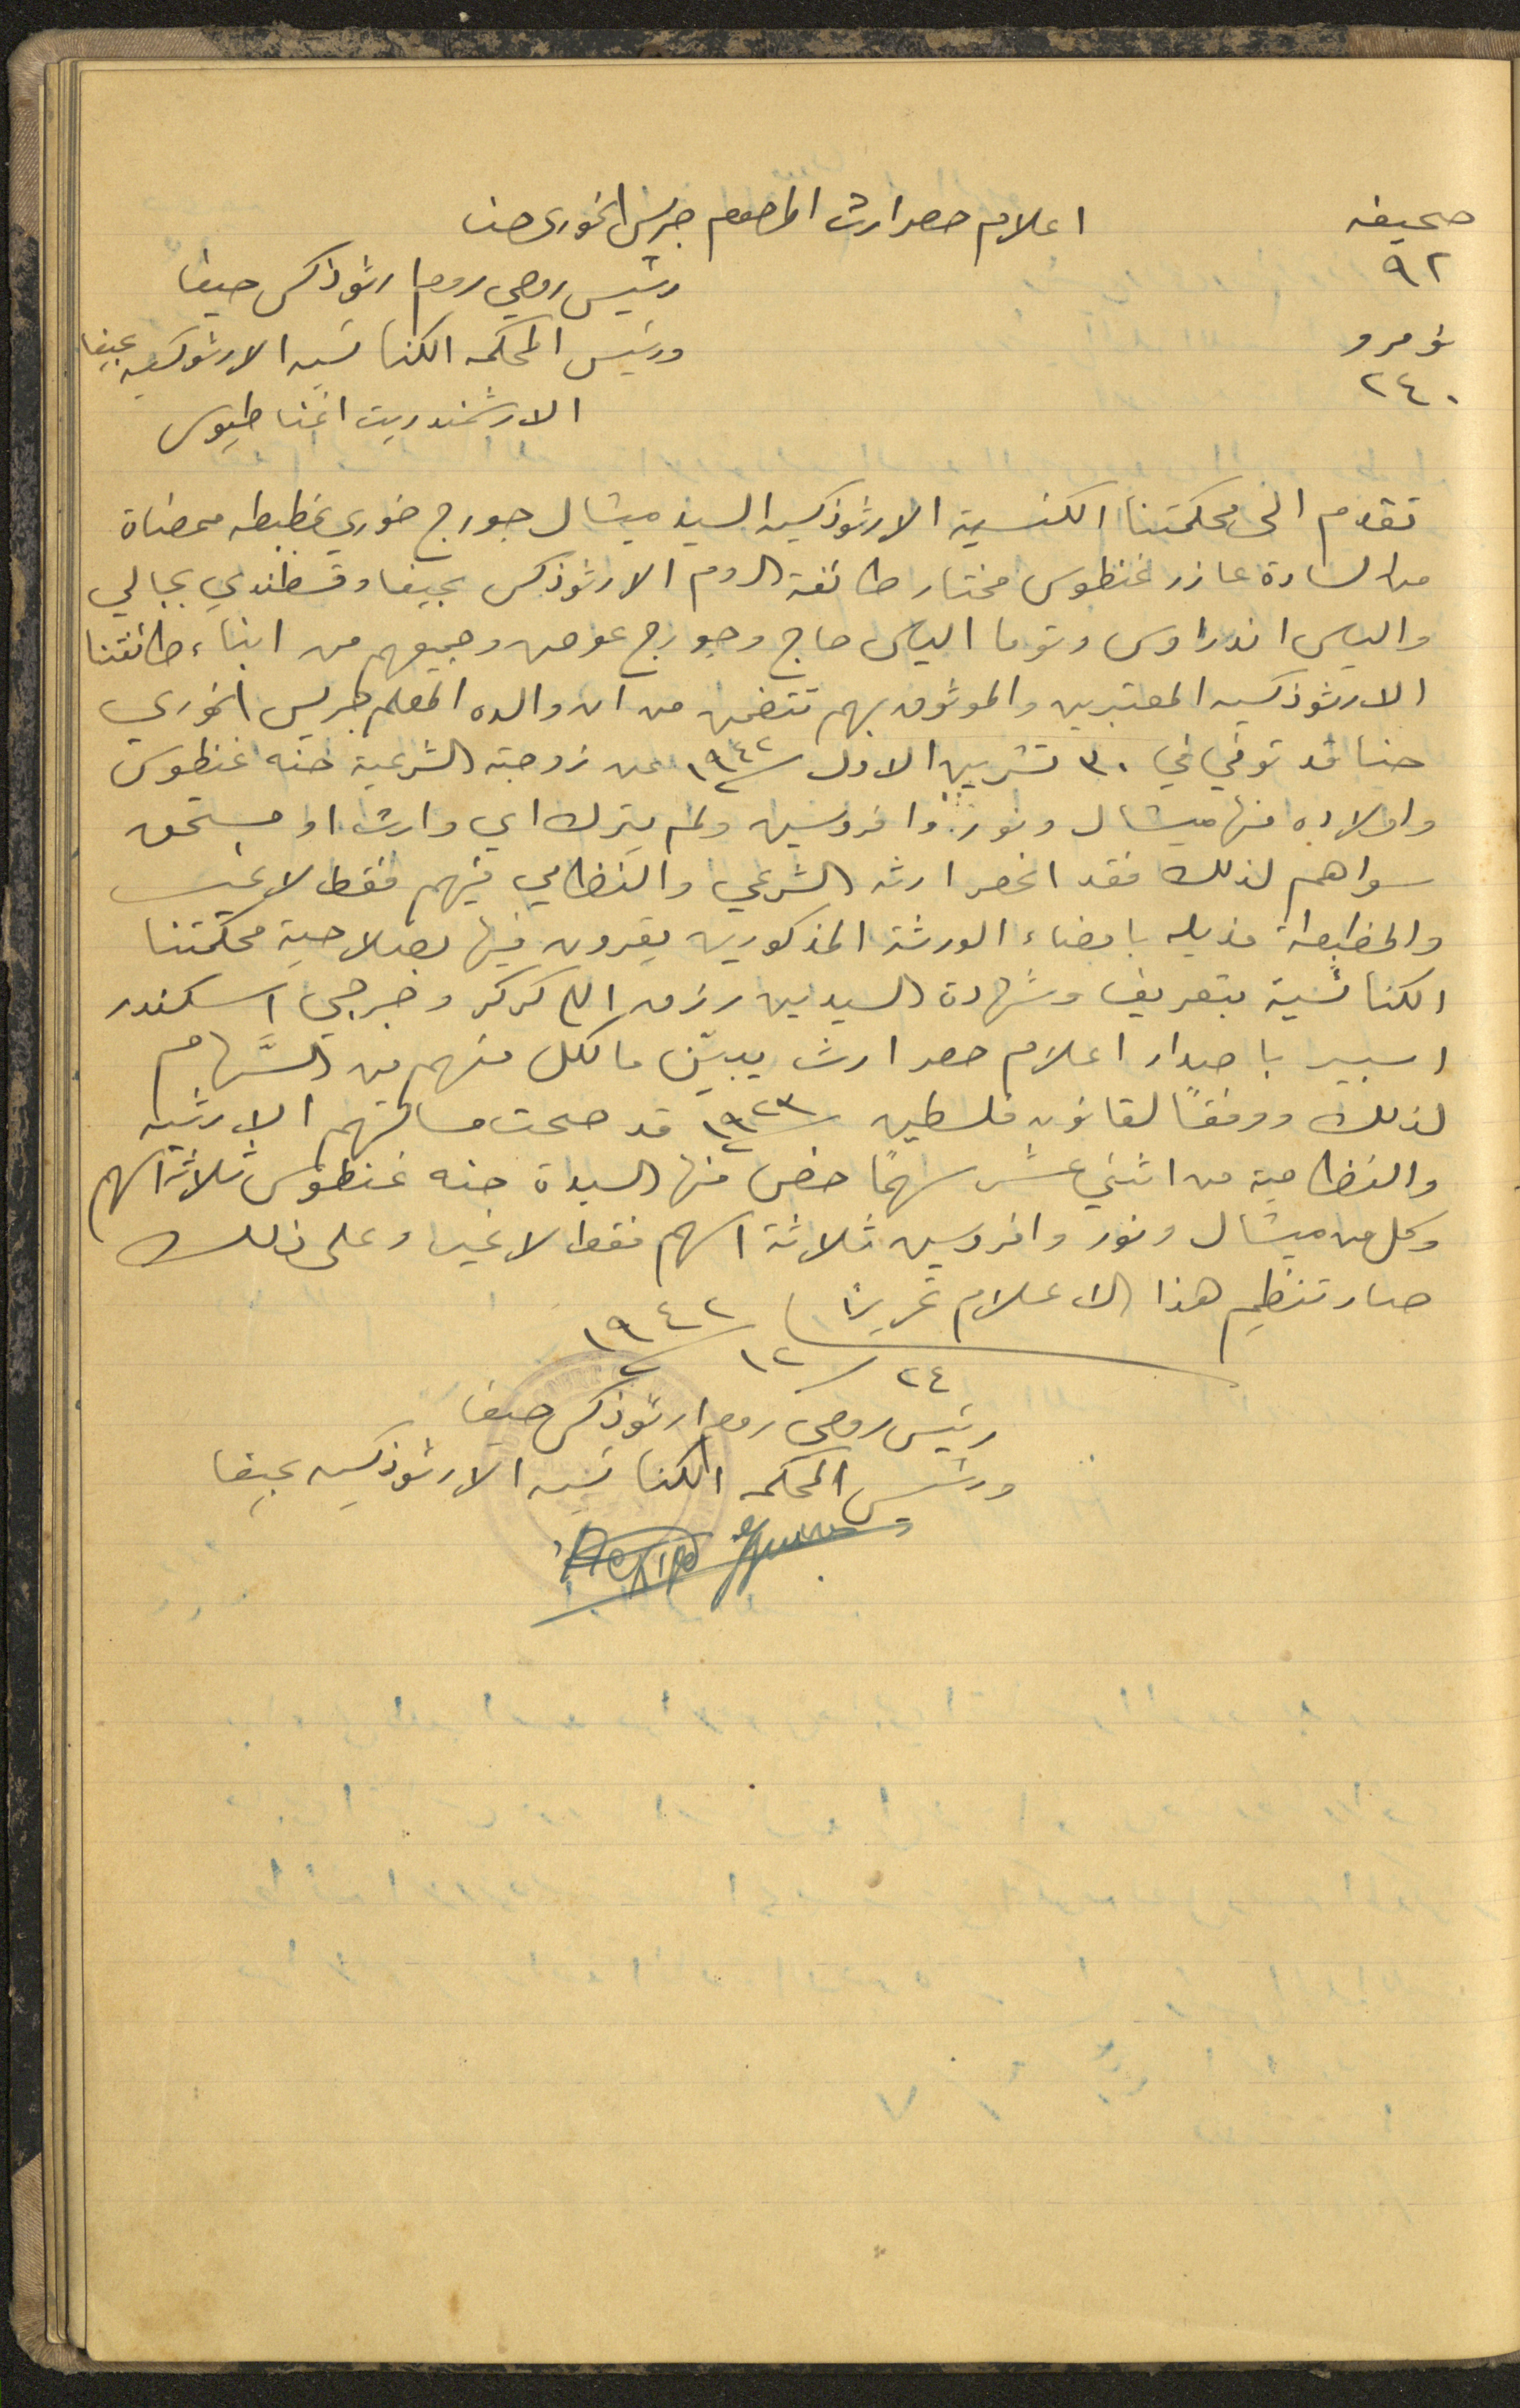 صحيفه
٩٢
نومرو
٢٤٠
اعلام حصر ارث المرحوم جريس الخوري حنا
رئيس روحي روم ارثوذكس حيفا
ورئيس المحكمه الكنائسيه الارثوذكسيه بحيفا
الارشمندريت اغناطيوس
تقدم الى محكمتنا الكنسية الارثوذكسيه السيد ميشال جورج خوري بمضبطه ممضاة
من السادة عازر غنطوس مختار طائفة الروم الارثوذكس بحيفا وقسطندي بجالي
والياس اندراوس وتوما الياس حاج وجورج عوض وجميعهم من ابناء طائفتنا
الارثوذكسيه المعتبرين والموثوق بهم تتضمن من ان والده المعلم جريس الخوري
حنا قد توفي في ٣٠ تشرين الاول سنة ١٩٤٢ عن زوجته الشرعية حنه غنطوس
واولاده منها ميشال ونور وافروسين ولم يترك اي وارث او مستحق
سواهم لذلك فقد انحصر ارثه الشرعي والنظامي فيهم فقط لا غير
والمضبطة مذيله بامضاء الورثة المذكورين يقرون فيها بصلاحية محكمتنا
الكنائسية بتعريف وشهادة السيدين رزق الله كركر وجرجي اسكندر
اسبير باصدار اعلام حصر ارث يبيّن ما لكل منهم من السَّهام
لذلك ووفقاً لقانون فلسطين سنة ١٩٢٣ قد صحت مسألتهم الارثيه
والنظامية من اثني عشر سهماً خص منها السيدة حنه غنطوس ثلاثة اسهم
وكل من ميشال ونور وافروسين ثلاثة اسهم فقط لا غير وعلى ذلك
صار تنظيم هذا الاعلام تحريراً
٢٤/١٢ سنة ١٩٤٢
رئيس روحي روم ارثوذكس حيفا
ورئيس المحكمه الكنائسيه الارثوذكسيه بحيفا